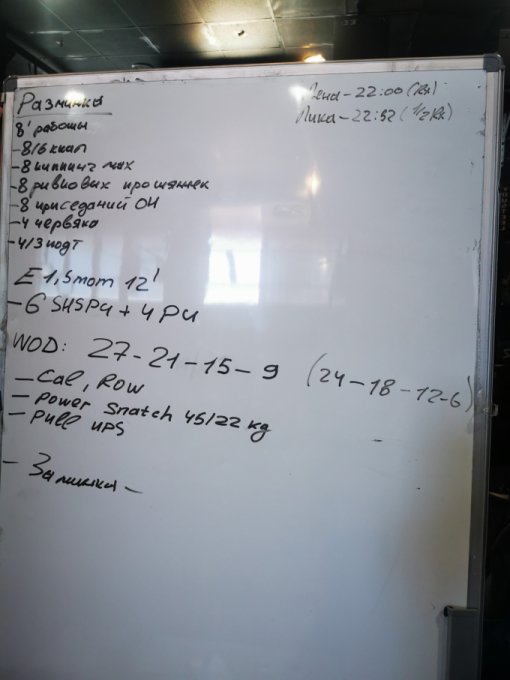 Разминка
8' работы
-8/6 ккал
-8 киппинг мах
-8 рывковых протяжек
-8 приседаний ОН
-4 червяка
-4/3 подт
E 1,5mom 12'
-6 SHSPU + 4 PU
WOD: 27-21-15-9 (24-18-12-6)
- Cal, Row
- Power Snatch 45/22 kg
- Pull ups
- Заминка -
Лена - 22:00 (Rx)
Лика - 22:52 (1/2 Rx)